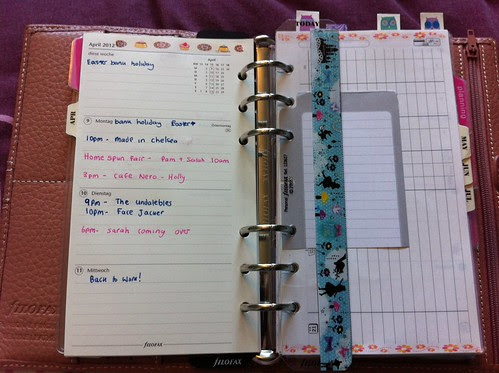 April 2012
diese woche
April
Easter bank holiday
9 Montag bank holiday Easter
10pm - Made in Chelsea
Home Spun Fair - Pam + Sarah 10am
3pm - Cafe Nero - Holly
10 Dienstag
9pm - The undateables
10pm - Face Jacker
6pm - Sarah coming over
11 Mittwoch
Back to work!
filofax
FILOFAX
TODAY
APR
planning
MAY
JUN
JUL
filofax